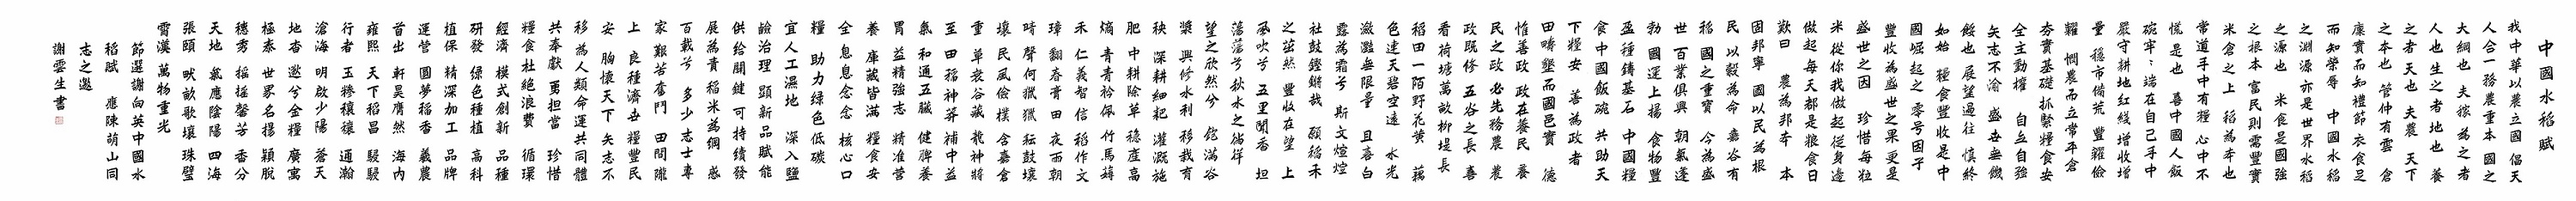 中國水稻賦
我中華以農立國 倡天
人合一務農重本 國之
大綱也 夫稼為之者
人也生之者地也 養
之者天也 夫農 天下
之本也 管仲有雲 倉
廩實而知禮節衣食足
而知榮辱 中國水稻
之淵源亦是世界水稻
之源也 米食是國強
之根本 富民則需豐實
米倉之上 稻為本也
常道手中有糧 心中不
慌是也 喜中國人飯
碗牢牢端在自己手中
嚴守耕地紅綫增收增
量 穩市備荒 豐糴儉
糶 憫農而立常平倉
夯實基礎抓緊糧食安
全主動權 自立自強
矢志不渝 盛世無饑
餒也 展望過往 慎終
如始 糧食豐收是中
國崛起之零号因子
豐收為盛世之果更是
盛世之因 珍惜每粒
米從你我做起從身邊
做起每天都是粮食日
歎曰 農為邦本 本
固邦寧 國以民為根
民以穀為命 嘉谷有
稻 國之重寶 今為盛
世 百業俱興 朝氣蓬
勃 國運上揚 食物豐
盈種鑄基石 中國糧
食中國飯碗 共助天
下糧安 善為政者
田疇墾而國邑實 德
惟善政 政在養民 養
民之政 必先務農 農
政既修 五谷之長 喜
看荷塘萬畝柳堤長
稻田一陌野花黄 藕
色連天碧空遠 水光
瀲灩無限量 且喜白
露為霜兮 斯文煊煊
社鼓鏗鏘哉 頤稻禾
之茁然 豐收在望 上
風吹兮 五里聞香 坦
蕩蕩兮 秋水之徜徉
望之欣然兮 館滿谷
槳 興修水利 移栽有
秧 深耕細耙 灌溉施
肥 中耕除草 穩產高
熵 青青衿佩 竹馬
禾 仁義智信 稻作文
璋 翻舂青田 夜雨朝
畸 聲何獵獵 耘鼓壤
壤 民風儉樸 含嘉倉
重 草裊谷葳 龍神將
至 田稻神莽 補中益
氣 和通五臟 健脾養
胃 益精強志 精准營
養 庫藏皆滿 糧食安
全 息息念念 核心口
糧 助力绿色低碳
宜人工濕地 深入鹽
鹼治理 顯新品賦能
供给關鍵 可持續發
展為貴稻米為綱 感
百载兮 多少志士專
家 艱苦奮鬥 田間隴
上 良種濟世糧豐民
安 胸懷天下 矢志不
移 為人類命運共同體
共奉獻勇担當 珍惜
糧食杜絕浪費 循環
經濟 模式創新 品種
研發 绿色種植 高科
植保 精深加工 品牌
運營 國夢稻香 羲農
首出 軒昊膺然 海內
雍熙 天下稻昌 駸駸
行者 玉糝穰穰 通瀚
滄海 明啟少陽 蒼天
地杳 邀兮金糧 廣寓
極泰 世界名揚 穎脫
穗秀 摇摇馨芳 香分
天地 氣應陰陽 四海
張頤 畎畝歌壤 珠璧
霄漢 萬物重光
節選謝向英中國水
稻賦 應陳萌山同
志之邀
謝雲生書